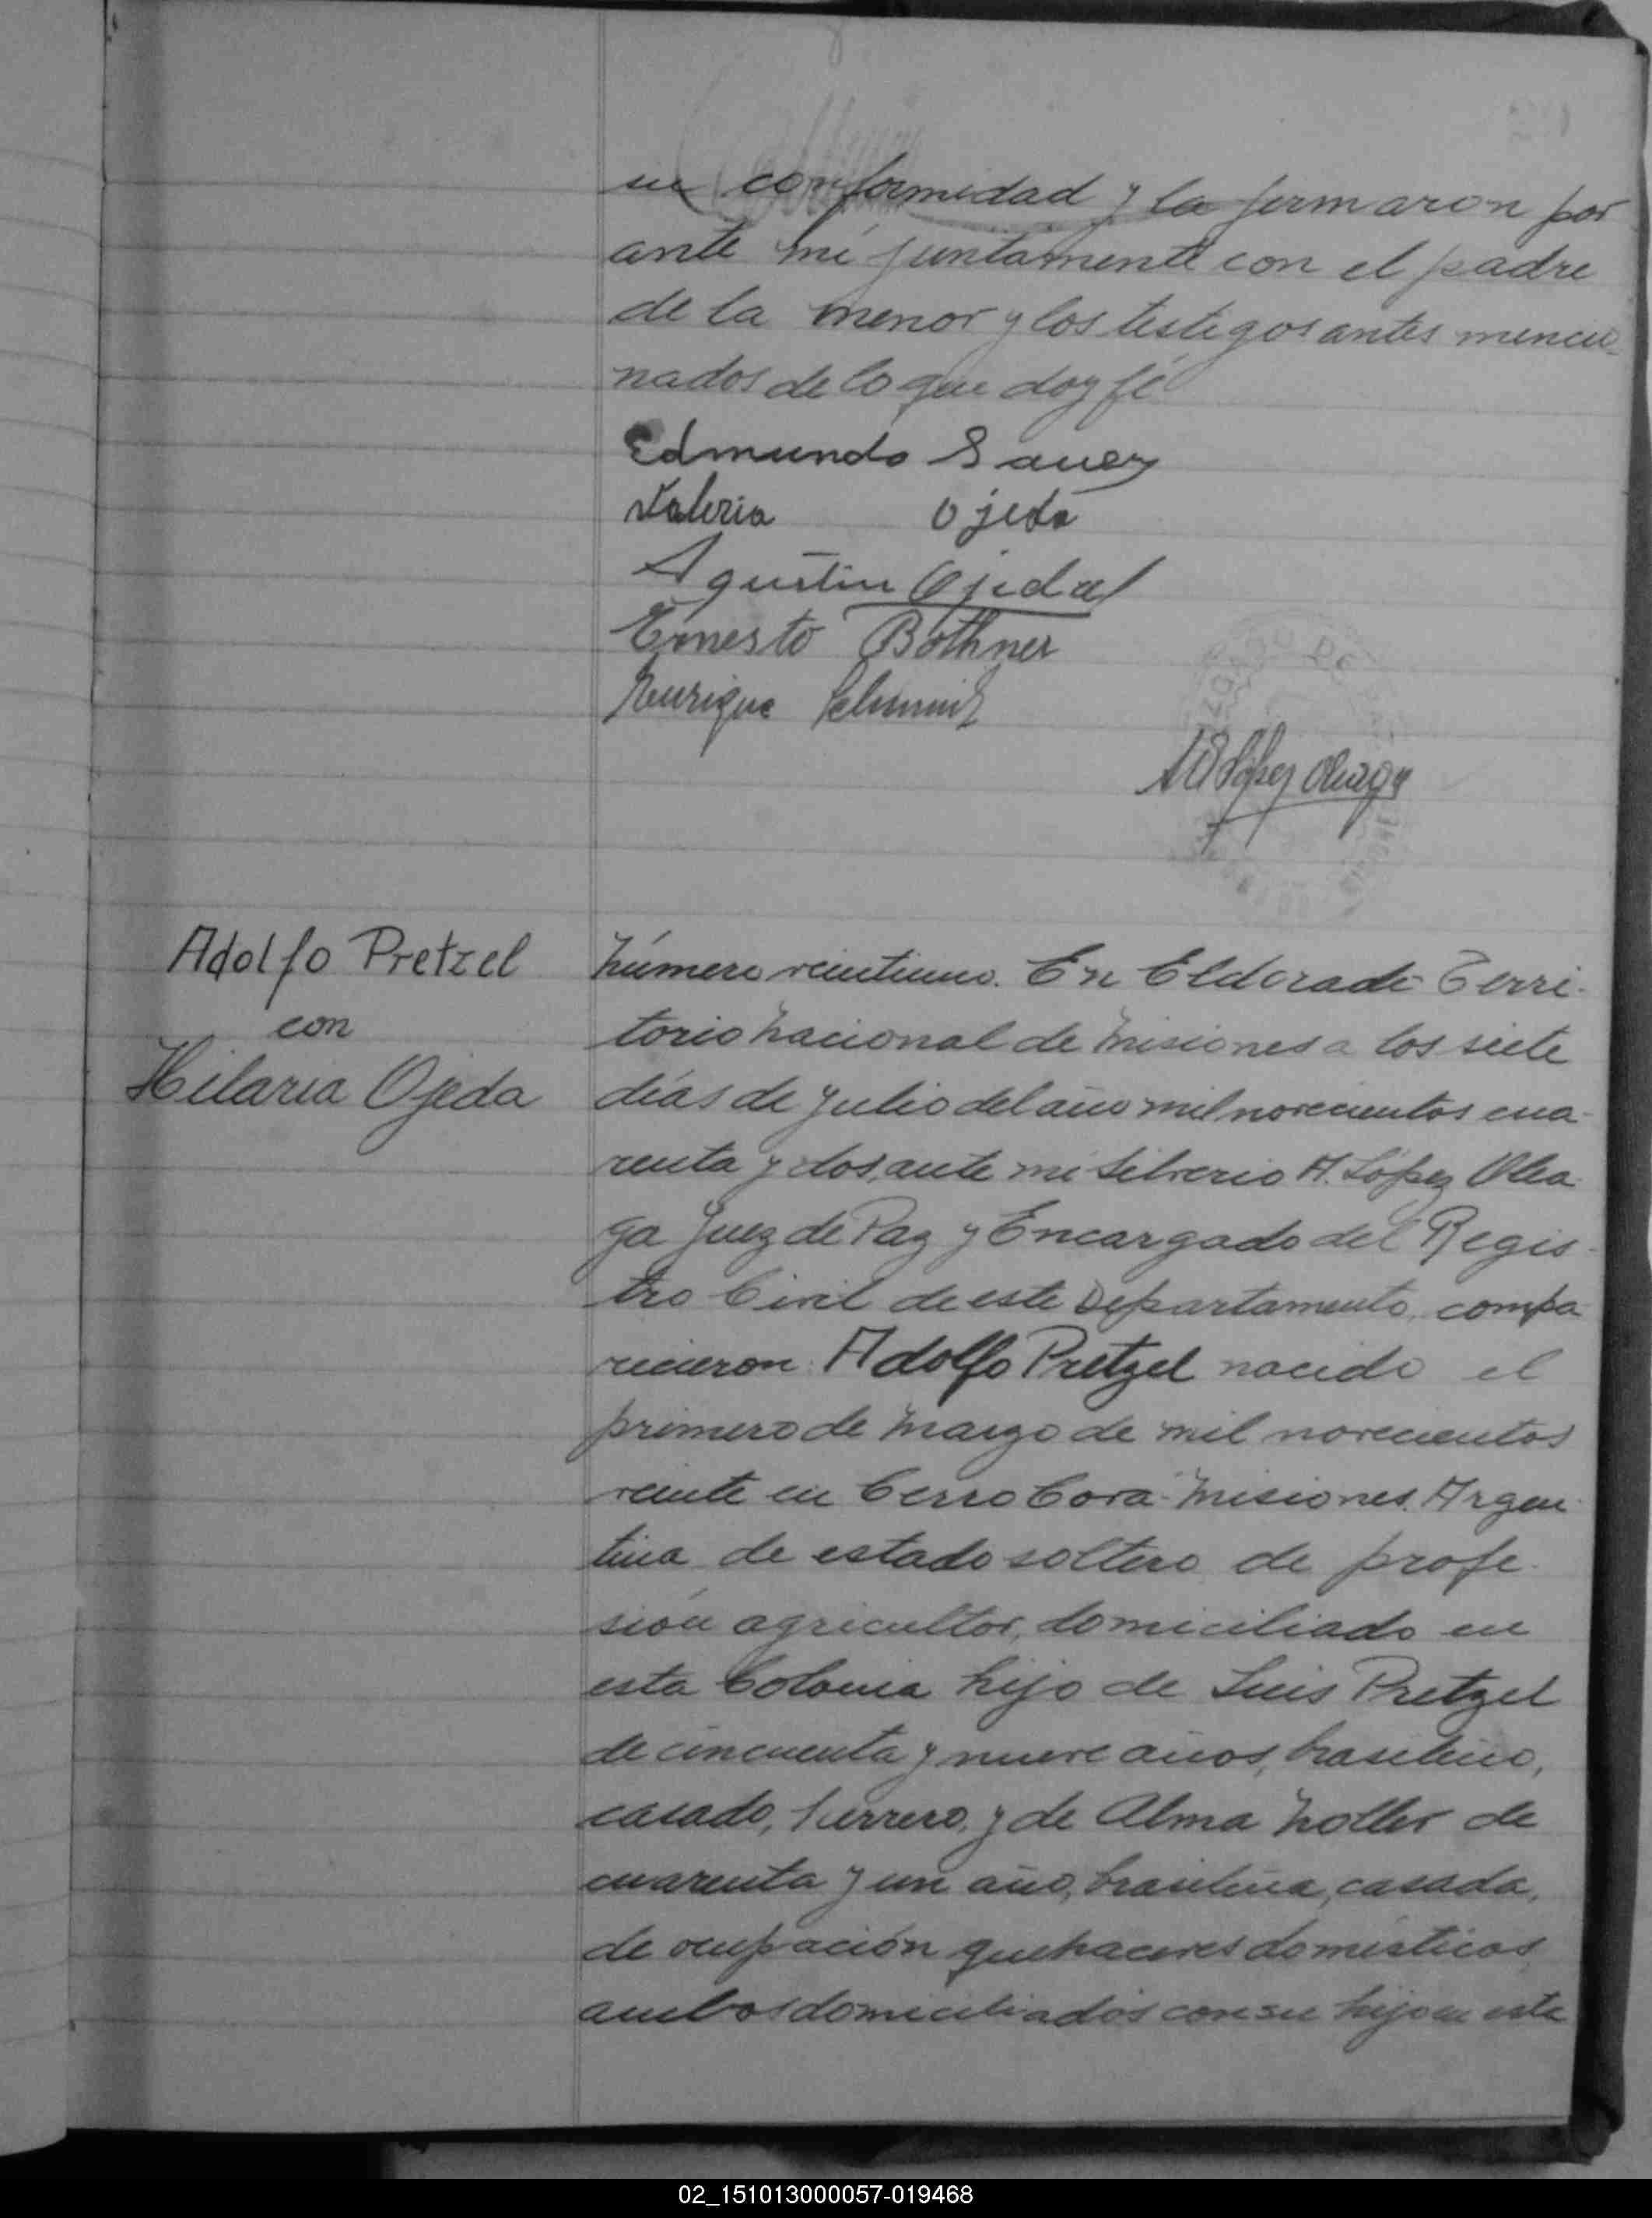 su conformidad y la firmaron por
ante mí juntamente con el padre
de la menor y los testigos antes mencio-
nados de lo que doy fé
Edmundo Sauer
Valeria Ojeda
Agustin Ojeda
Ernesto Bothner
Enrique Schmid
Adolfo Pretzel
con
Hilaria Ojeda
Número veintiuno. En Eldorado Terri-
torio Nacional de Misiones a los siete
días de Julio del año mil novecientos cua-
renta y dos, ante mí Silverio A. López Olea-
ga Juez de Paz y Encargado del Regis-
tro Civil de este Departamento, compa-
recieron: Adolfo Pretzel nacido el
primero de Marzo de mil novecientos
veinte en Cerro Corá-Misiones. Argen-
tina de estado soltero de profe-
sión agricultor, domiciliado en
esta Colonia hijo de Luis Pretzel
de cincuenta y nueve años, brasileño,
casado, herrero, y de Alma Noller de
cuarenta y un año, brasileña, casada,
de ocupación quehaceres domésticos,
ambos domiciliados con su hijo en esta
02_151013000057-019468